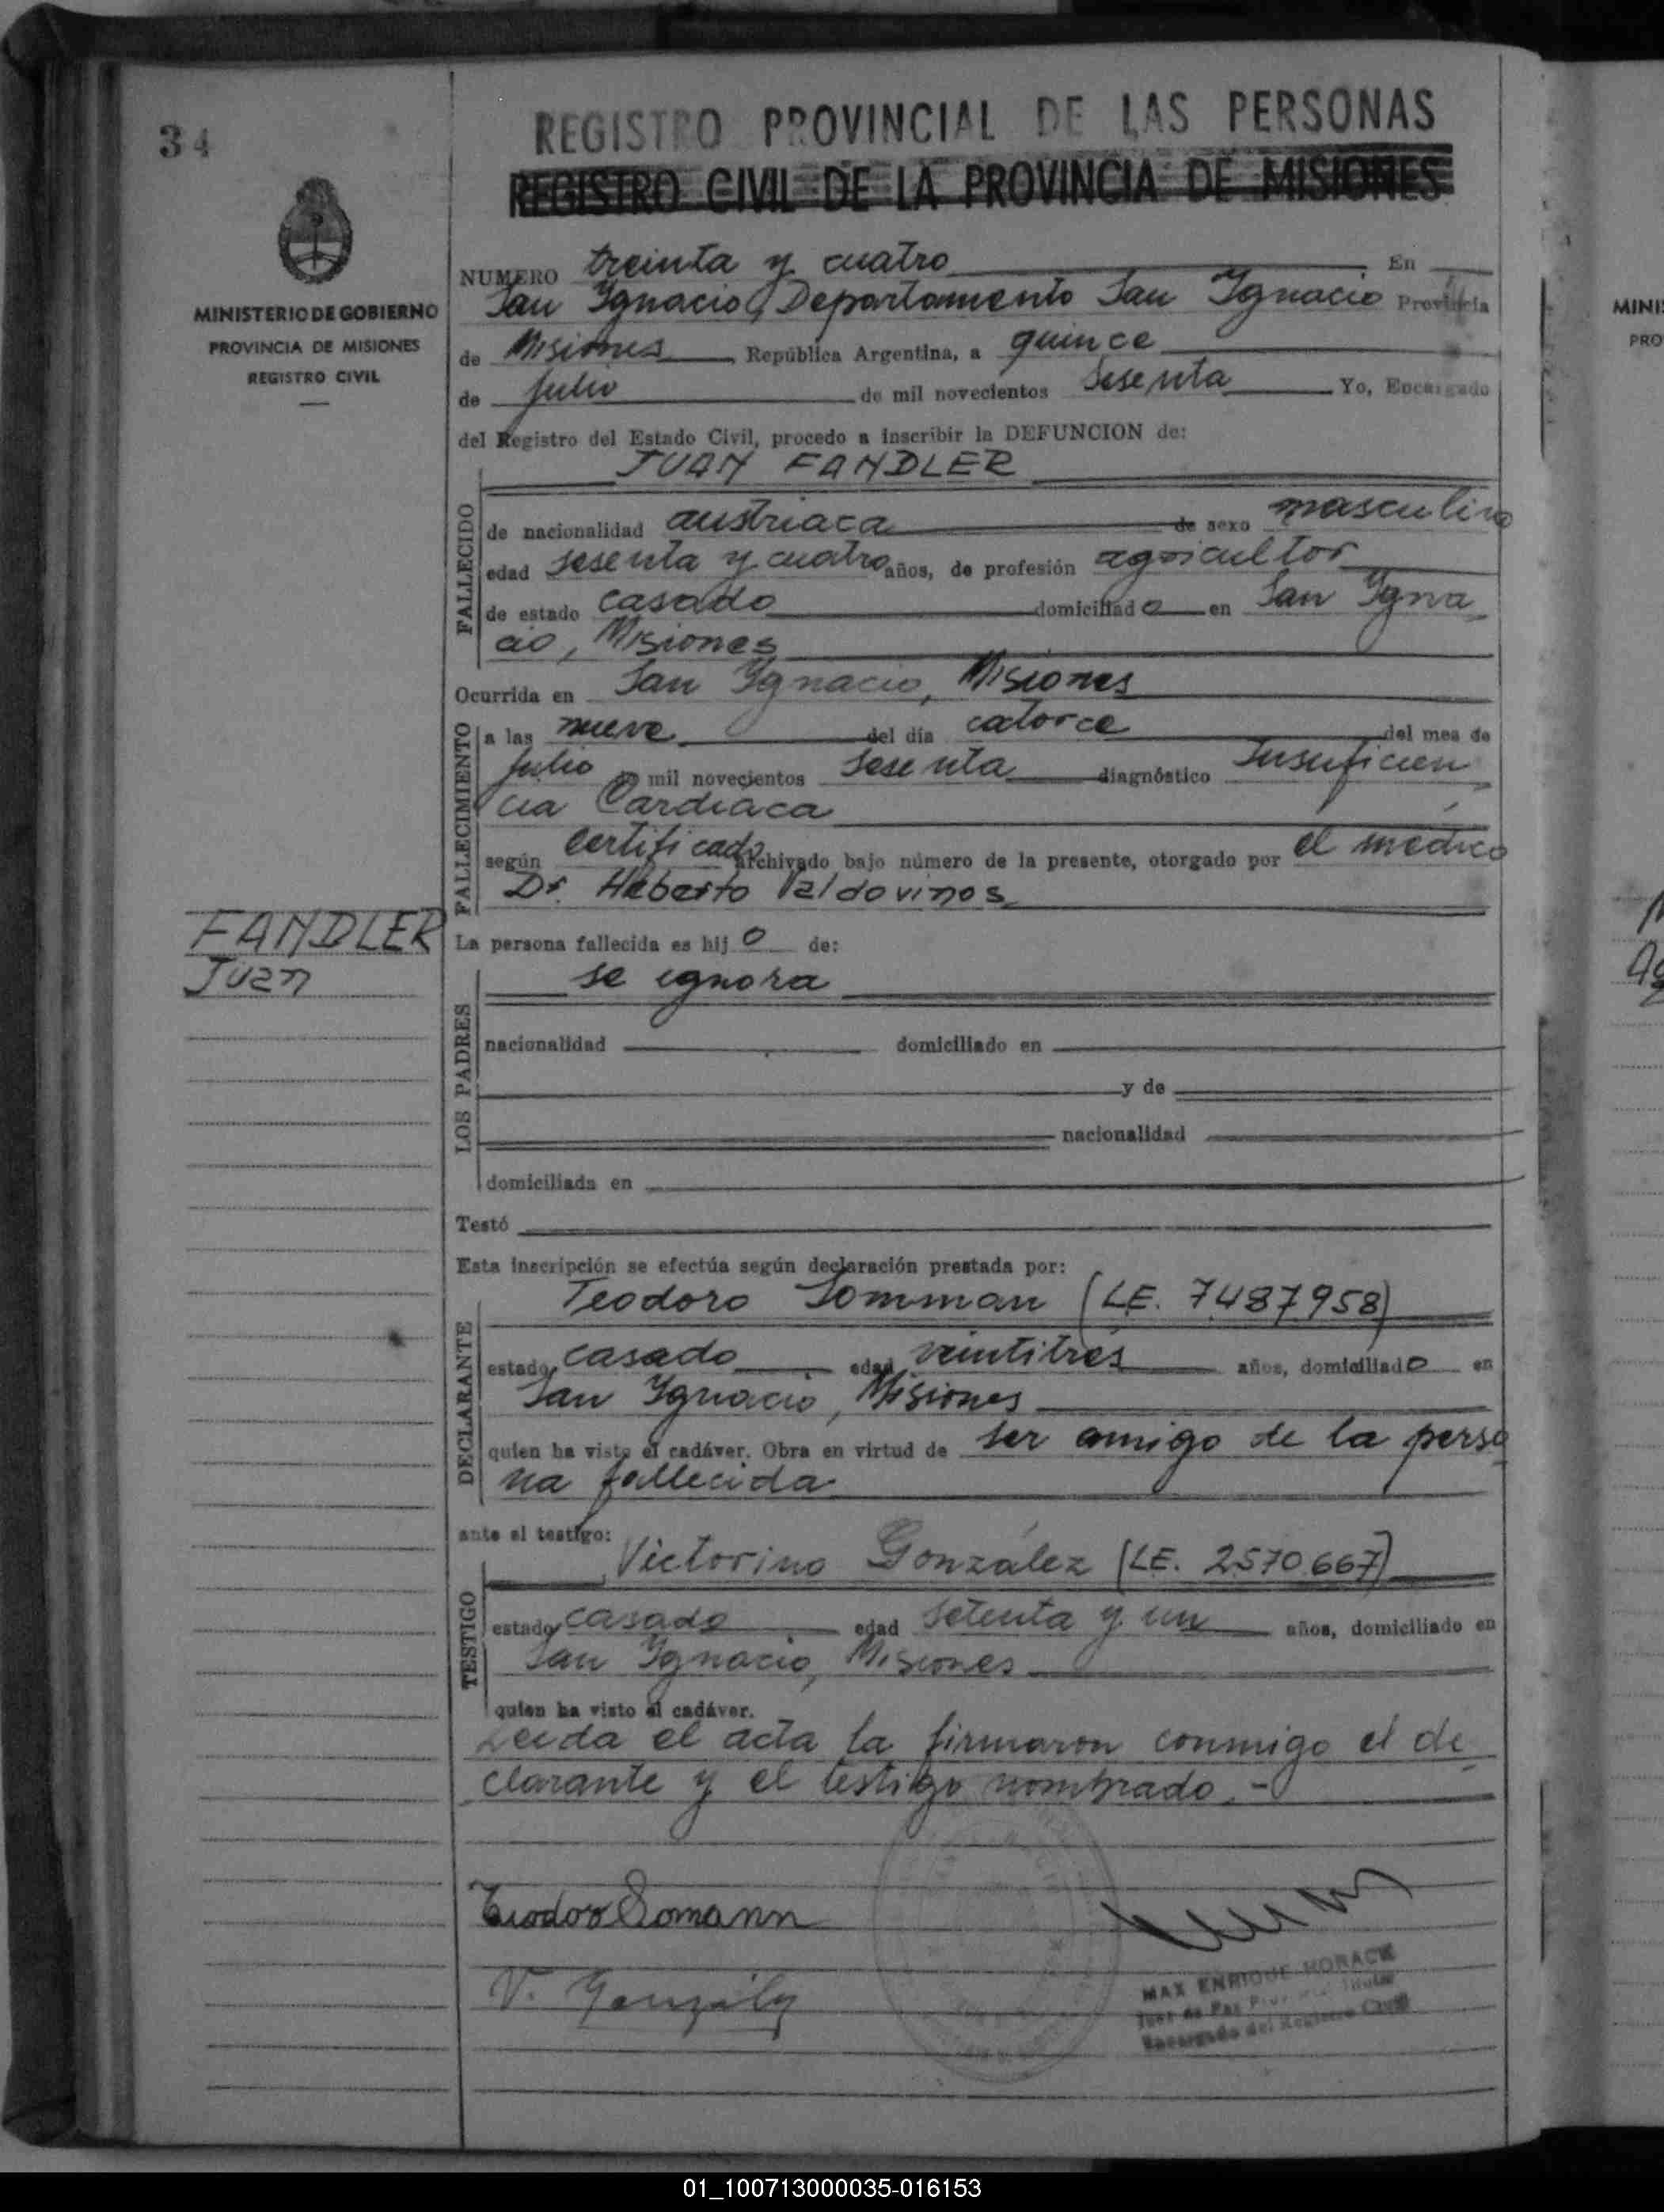 34
REGISTRO PROVINCIAL DE LAS PERSONAS
REGISTRO CIVIL DE LA PROVINCIA DE MISIONES
MINISTERIO DE GOBIERNO
PROVINCIA DE MISIONES
REGISTRO CIVIL
NUMERO treinta y cuatro En
San Ignacio, Departamento San Ignacio Provincia
de Misiones República Argentina, a quince
de Julio de mil novecientos sesenta Yo, Encargado
del Registro del Estado Civil, procedo a inscribir la DEFUNCION de:
JUAN FANDLER
FALLECIDO
de nacionalidad austriaca de sexo masculino
edad sesenta y cuatro años, de profesión agricultor
de estado casado domiciliado en San Igna
cio, Misiones
Ocurrida en San Ignacio, Misiones
FALLECIMIENTO
a las nueve del día catorce del mes de
Julio de mil novecientos sesenta diagnóstico Insuficien
cia Cardiaca
según certificado archivado bajo número de la presente, otorgado por el médico
Dr. Heberto Valdovinos
FANDLER
Juan
La persona fallecida es hijo de:
LOS PADRES
se ignora
nacionalidad domiciliado en
y de
nacionalidad
domiciliada en
Testó
Esta inscripción se efectúa según declaración prestada por:
DECLARANTE
Teodoro Somman (LE. 7487958)
estado casado edad veintitrés años, domiciliado en
San Ignacio, Misiones
quien ha visto el cadáver. Obra en virtud de ser amigo de la perso
na fallecida
ante el testigo:
TESTIGO
Victorino González (LE. 2570.667)
estado casado edad setenta y un años, domiciliado en
San Ignacio, Misiones
quien ha visto el cadáver.
Leida el acta la firmaron conmigo el de
clarante y el testigo nombrado.-
Teodoro Somann
V. González
MAX ENRIQUE HORACK
Juez de Paz Titular
Encargado del Registro Civil
MINI
PRO
01_100713000035-016153